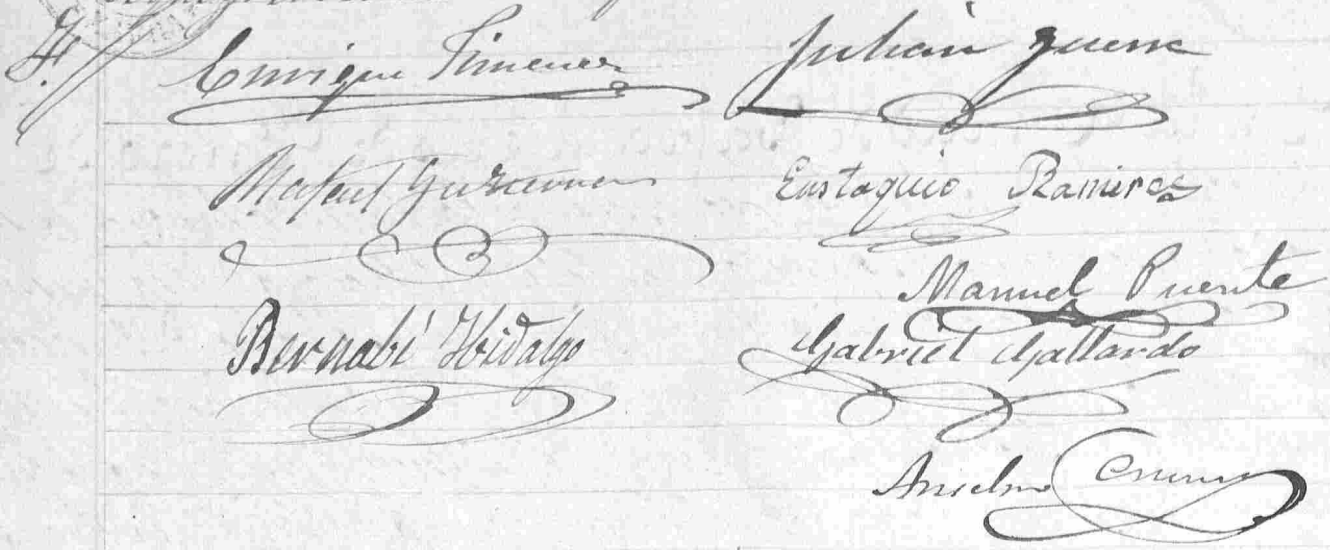 Enrique Jimenez Julian Guerra
Rafael Guzman Eustaquio Ramirez
Manuel Puente
Bernabé Hidalgo Gabriel Gallardo
Anselmo